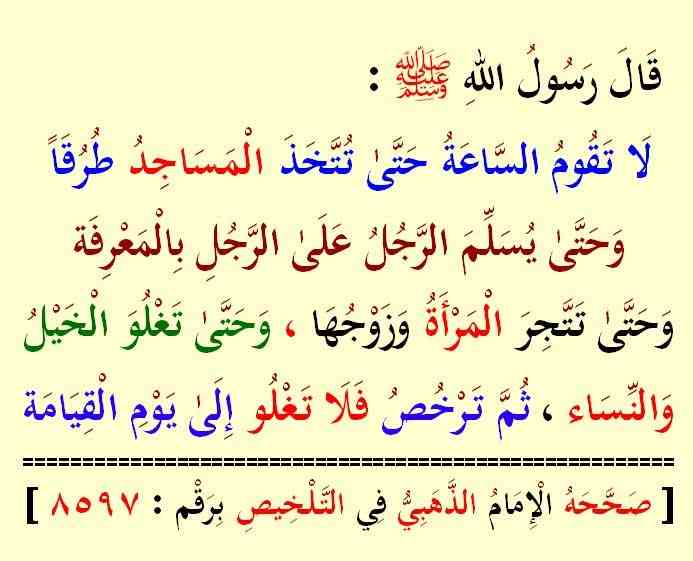 قَالَ رَسُولُ اللهِ ﷺ :
لَا تَقُومُ السَّاعَةُ حَتَّىٰ تُتَّخَذَ الْمَسَاجِدُ طُرُقَاً
وَحَتَّىٰ يُسَلِّمَ الرَّجُلُ عَلَىٰ الرَّجُلِ بِالْمَعْرِفَة
وَحَتَّىٰ تَتَّجِرَ الْمَرْأَةُ وَزَوْجُهَا ، وَحَتَّىٰ تَغْلُوَ الْخَيْلُ
وَالنِّسَاء ، ثُمَّ تَرْخُصُ فَلَا تَغْلُو إِلَىٰ يَوْمِ الْقِيَامَة
[ صَحَّحَهُ الْإِمَامُ الذَّهَبِيُّ فِي التَّلْخِيصِ بِرَقْم : ٨٥٩٧ ]